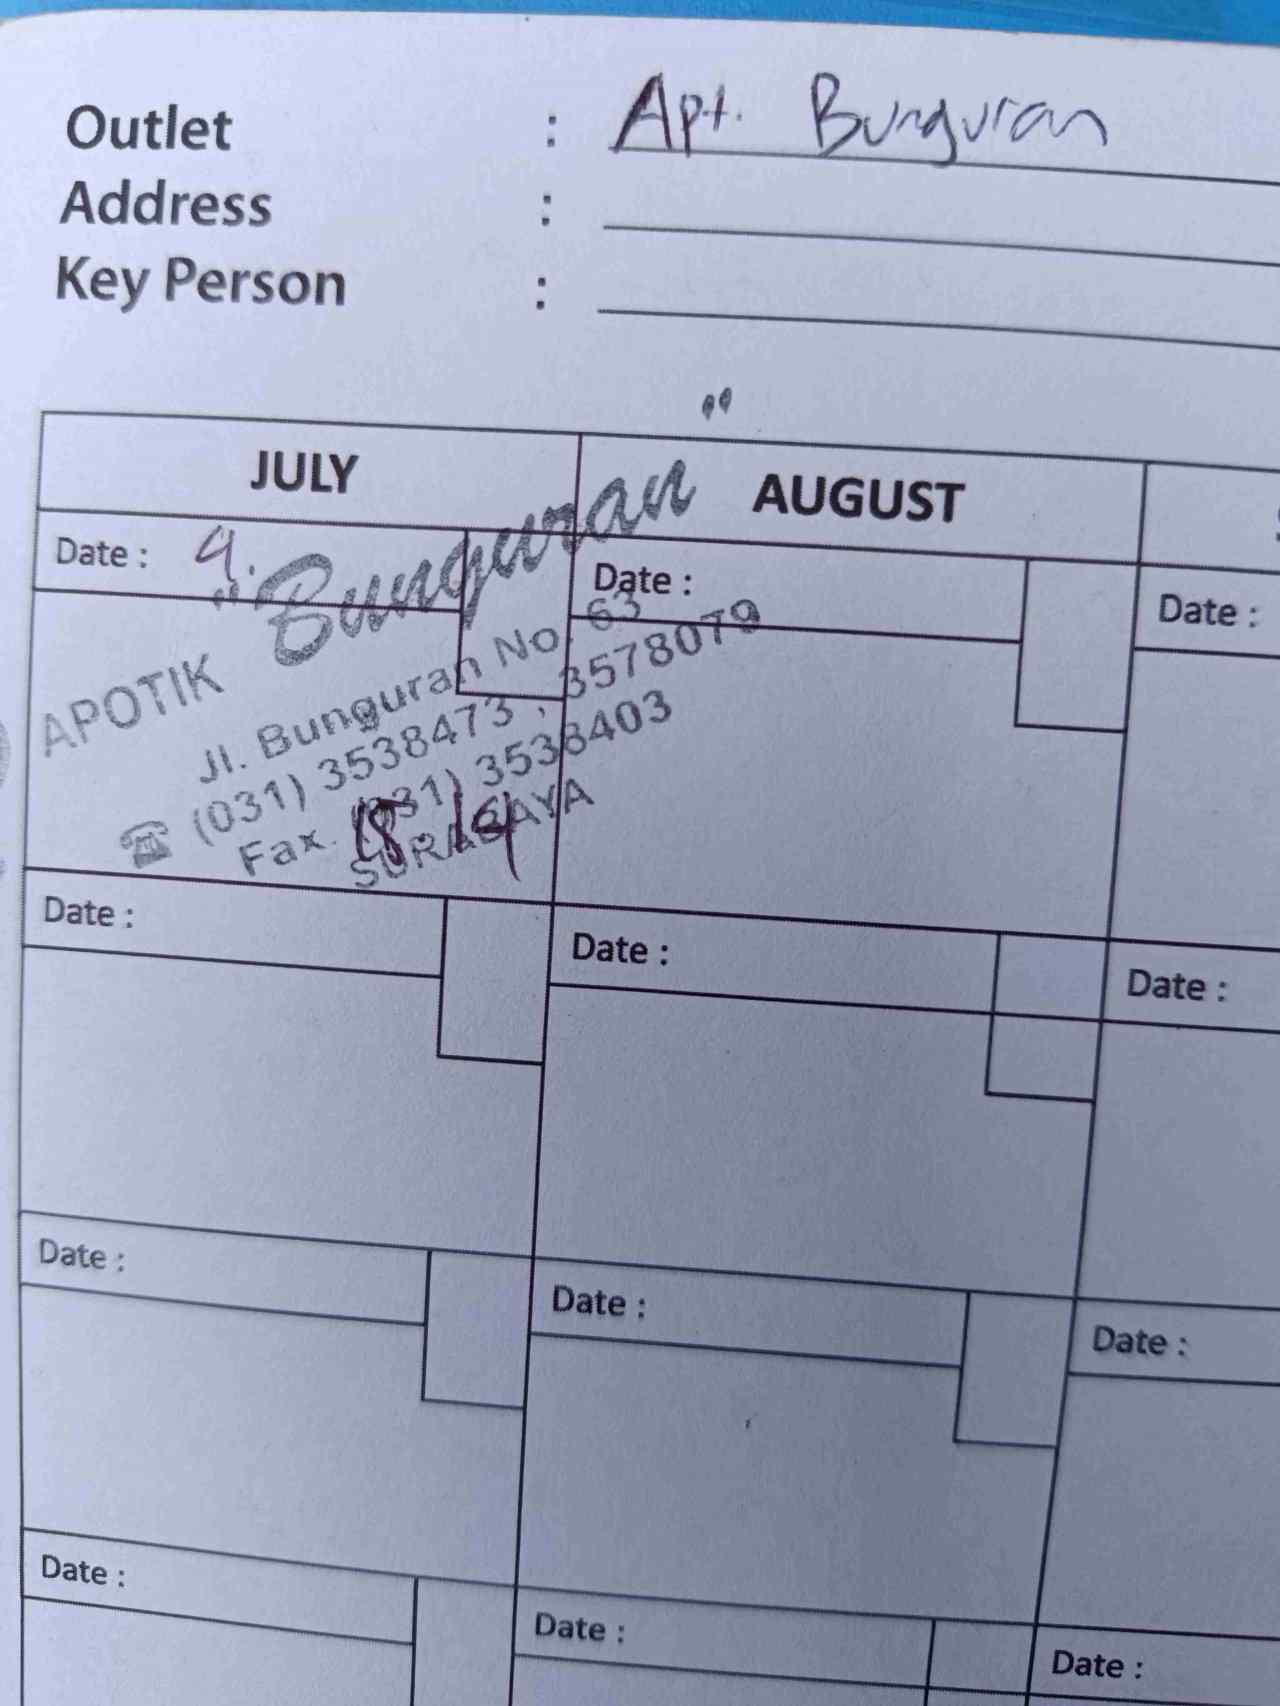 Outlet : Apt. Bunguran
Address :
Key Person :
JULY
AUGUST
Date : 9.
Date :
Date :
APOTIK "Bunguran"
Jl. Bunguran No. 63
(031) 3538473, 3578079
Fax. (031) 3538403
SURABAYA
Date :
Date :
Date :
Date :
Date :
Date :
Date :
Date :
Date :